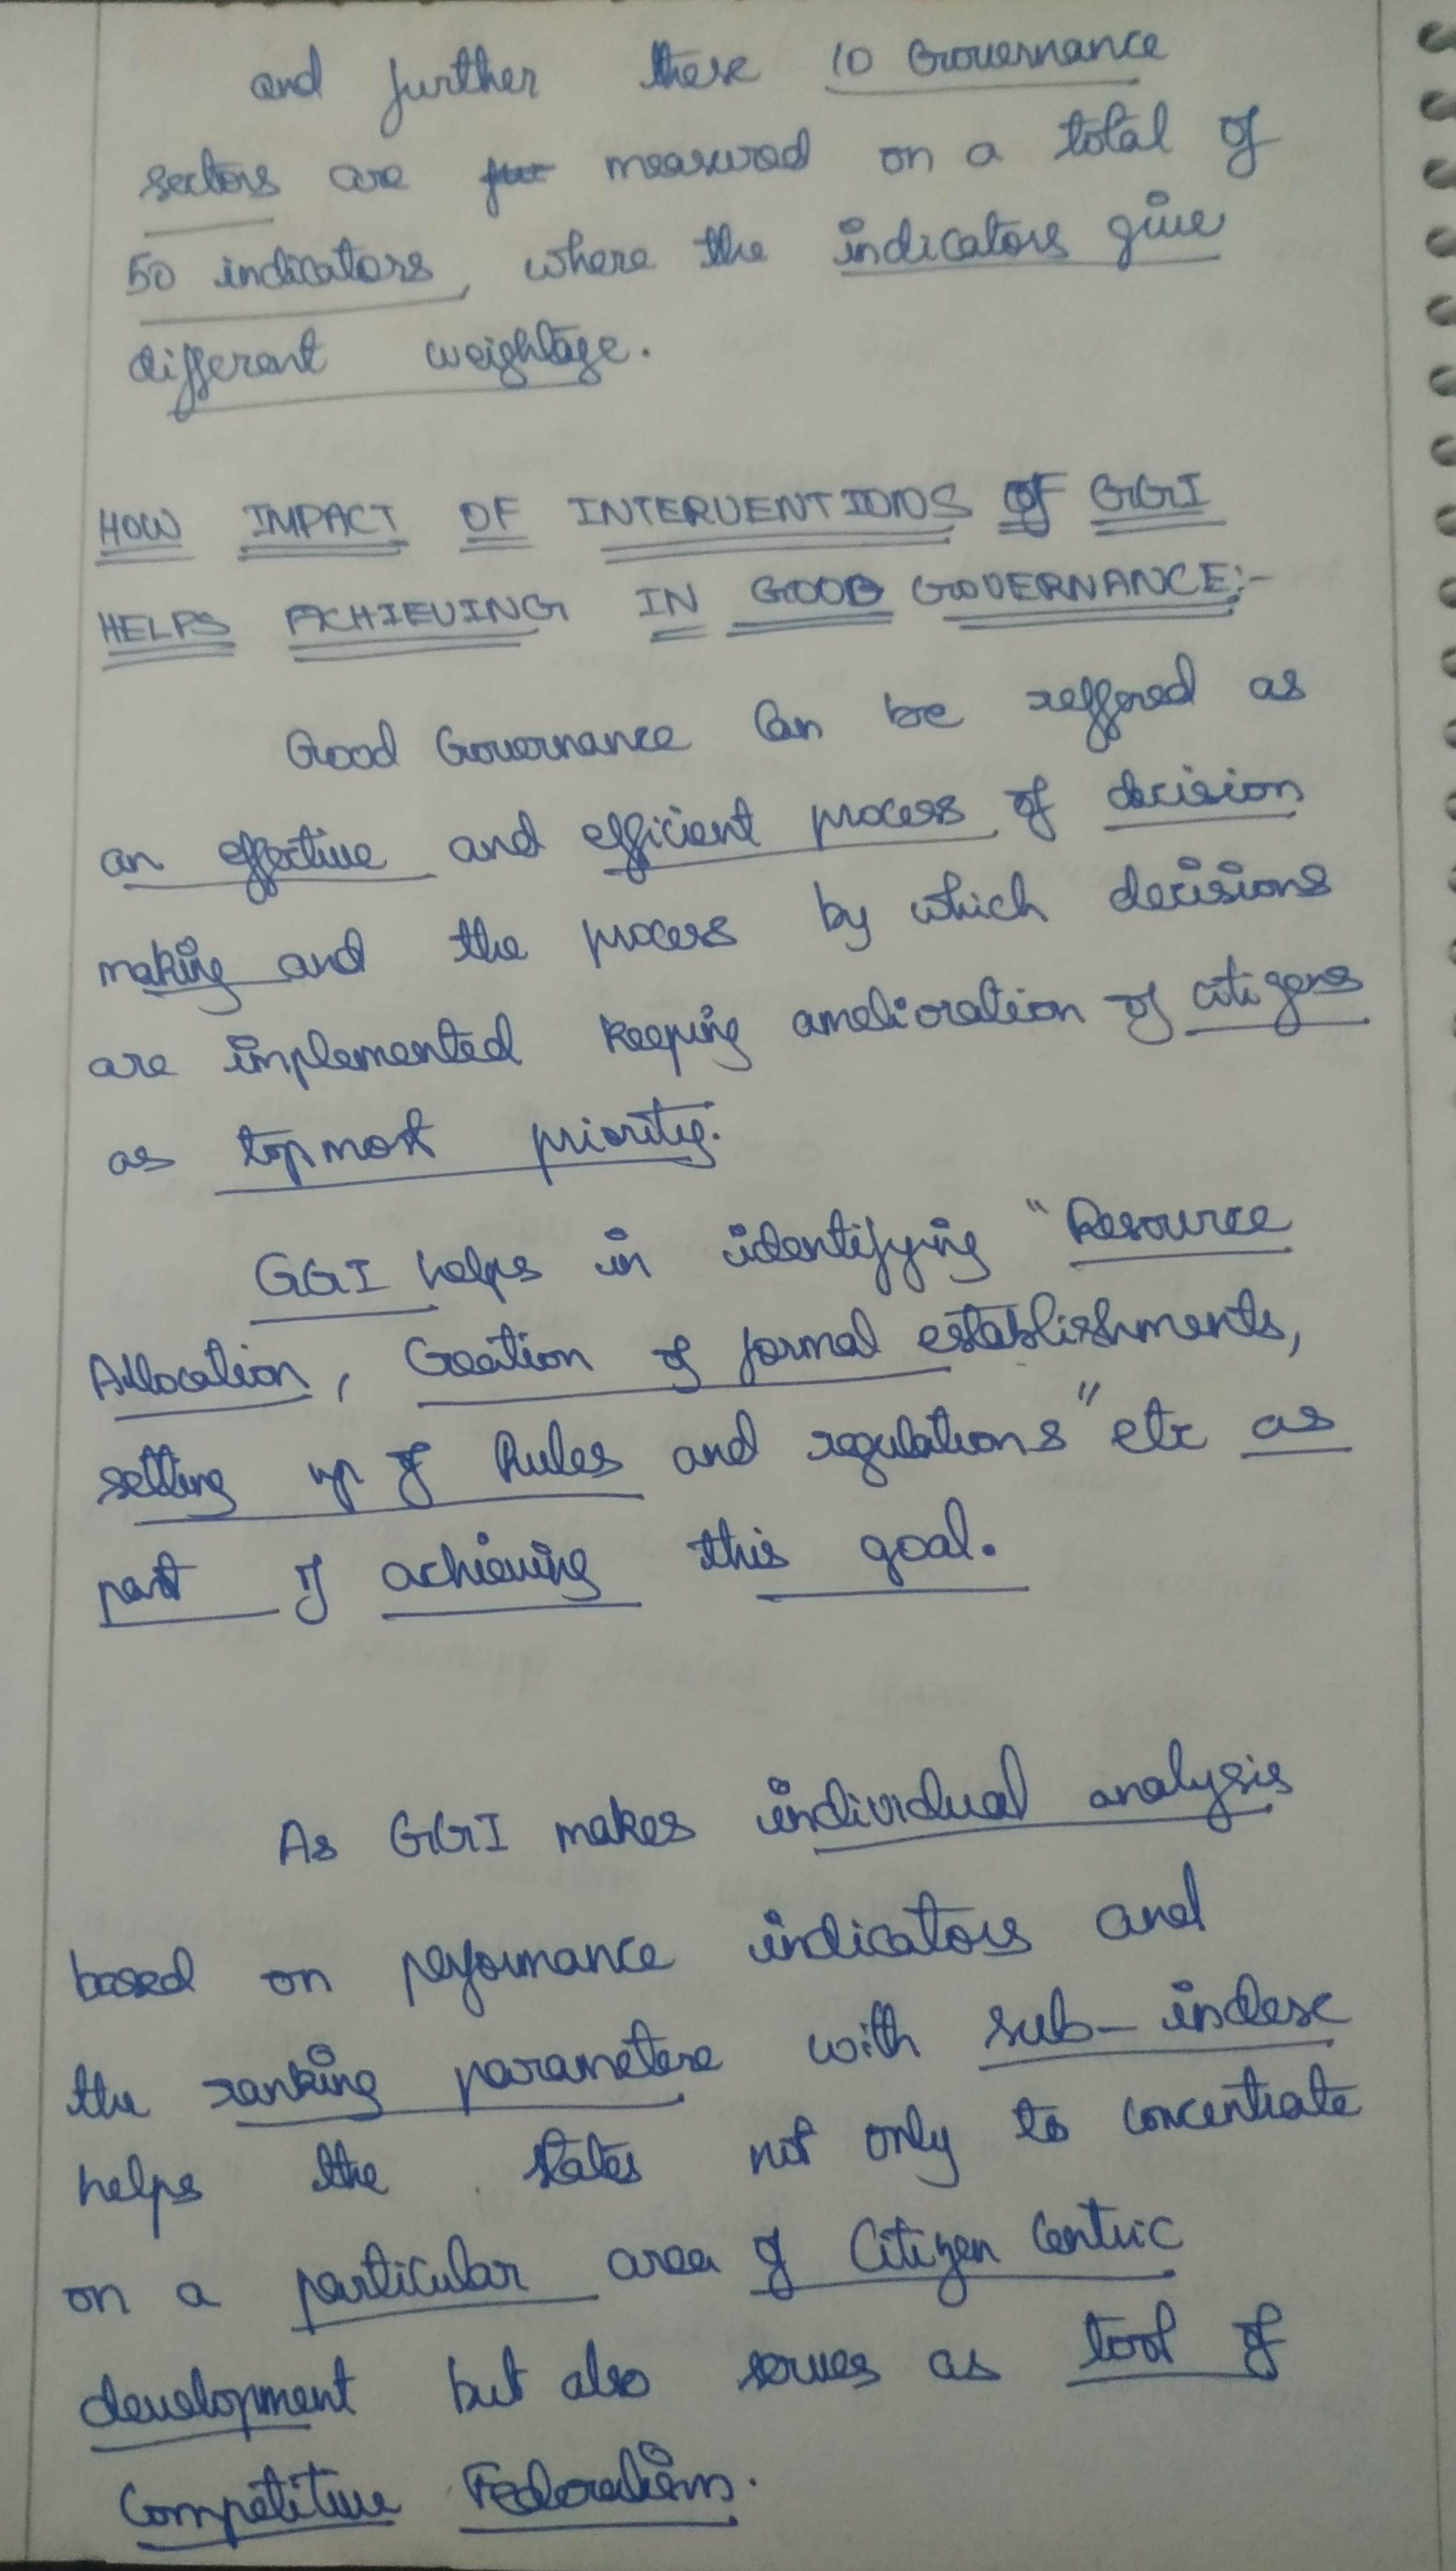 and further these 10 Governance
sectors are measured on a total of
50 indicators, where the indicators give
different weightage.
HOW IMPACT OF INTERVENTIONS OF GGI
HELPS ACHIEVING IN GOOD GOVERNANCE:-
Good Governance Can be reffered as
an effective and efficient process of decision
making and the process by which decisions
are implemented keeping amelioration of citizens
as topmost priority.
GGI helps in identifying "Resource
Allocation, Creation of formal establishments,
setting up of Rules and regulations" etc as
part of achieving this goal.
As GGI makes individual analysis
based on performance indicators and
the ranking parameters with sub-index
helps the states not only to concentrate
on a particular area of Citizen Centric
development but also serves as tool of
Competitive Federalism.